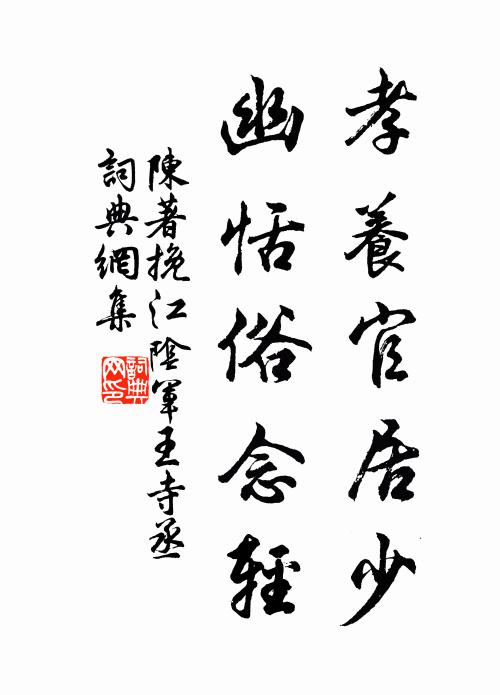 孝養官居少
幽恬俗念輕
陳著挽江陰軍王寺丞
詞典網集
詞典
网印